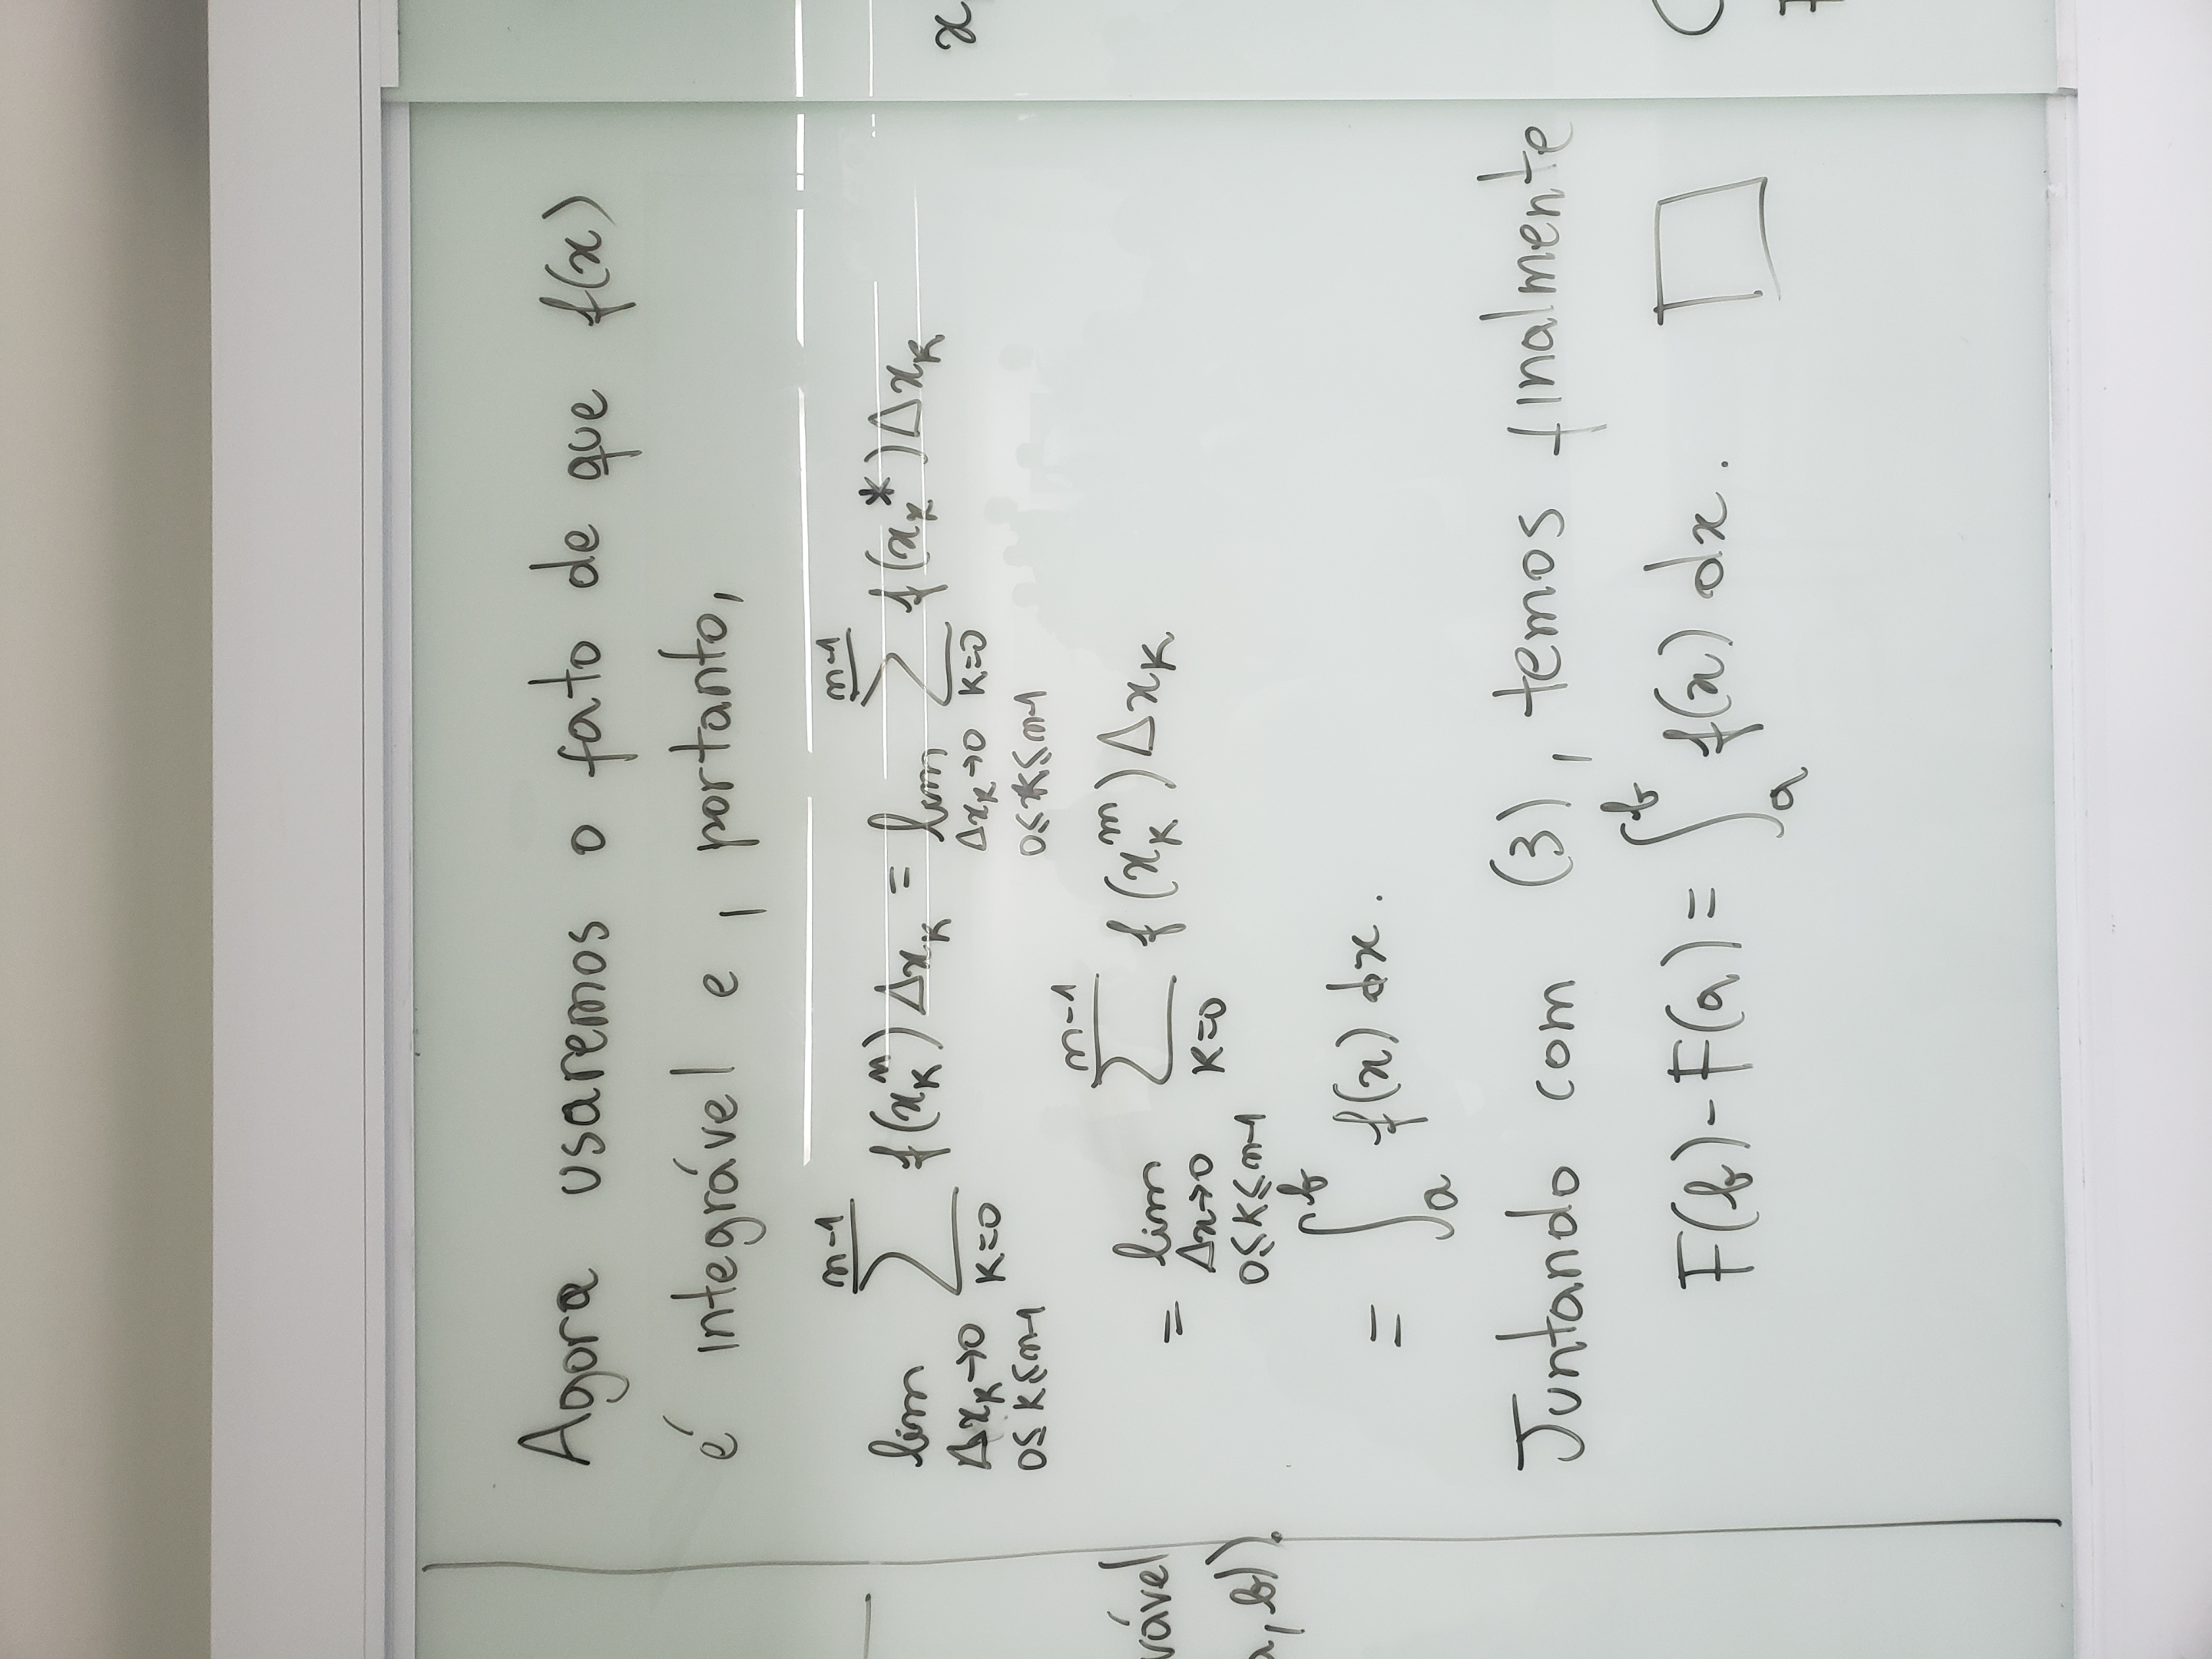 Agora usaremos o fato de que f(x)
é integrável e, portanto,
lim_{Δx_K→0, 0≤K≤n-1} ∑_{K=0}^{n-1} f(x_K^m) Δx_K = lim_{Δx_K→0, 0≤K≤n-1} ∑_{K=0}^{n-1} f(x_K^*) Δx_K
= lim_{Δx→0, 0≤K≤n-1} ∑_{K=0}^{n-1} f(x_K^m) Δx_K
= ∫_a^b f(x) dx.
Juntando com (3), temos finalmente
F(b)-F(a) = ∫_a^b f(x) dx. □
vável
a,b)).
x